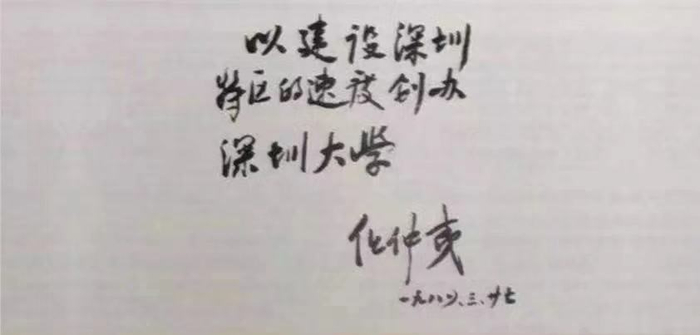 以建设深圳
特区的速度创办
深圳大学
任仲夷
一九八四.三.廿七